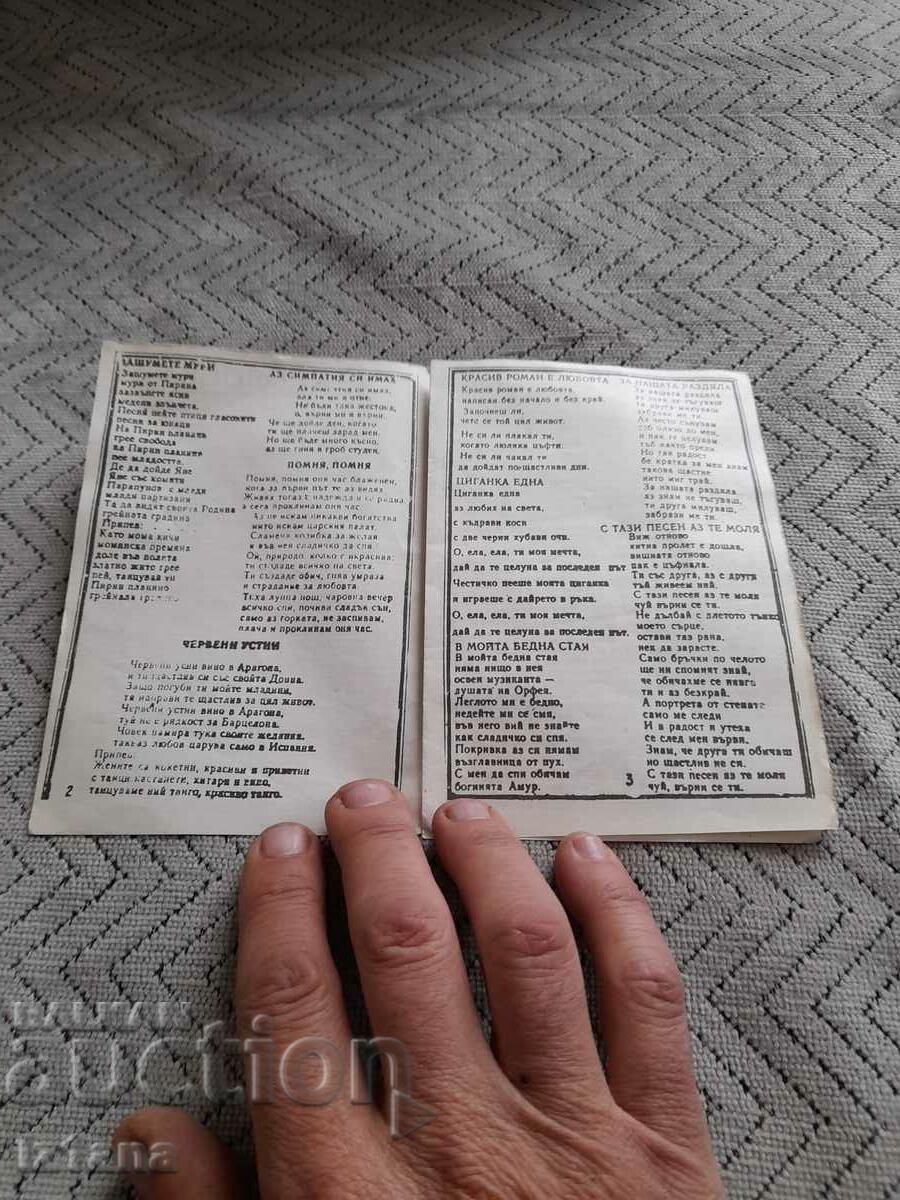 ЗАШУМЕТЕ
Зашумете мури
мури от Пирина
ясни
медени
Песни пейте птици гласовити
песни за юнаци
На Пирин планина
грее свобода
на Пирин планина
пее младостта.
Де да дойде Яне
Яне със комити
Парапунов с млади
млади партизани
Та да видят своята Родина
градина
Припев:
Като мома кичи
моминска премяна
доле във полета
златно жито грее
пей, танцувай ти
Пирин планино
АЗ СИМПАТИЯ СИ ИМАХ
Не бъди така жестока,
о, върни ми я върни.
Че ще дойде ден, когато
ти ще плачеш заради мен.
Но ще бъде много късно,
аз ще гния в гроб студен.
ПОМНЯ, ПОМНЯ
Помня, помня оня час блажен,
кога за първи път те аз видях
а сега проклинам оня час.
Аз не искам никакви богатства
нито искам царския палат.
Сламена колибка аз желая
и във нея сладичко да спя.
ти създаде всичко на света.
Ти създаде обич, гняв умраза
и страдание за любовта.
Тиха лунна нощ, чаровна вечер
всичко спи, почива сладък сън,
само аз горката, не заспивам,
плача и проклинам оня час.
ЧЕРВЕНИ УСТНИ
Червени устни вино в Арагона,
и ти щастлив си със своята Донна.
Защо погуби ти мойте младини,
тя направи те щастлив за цял живот.
Червени устни вино в Арагона,
туй не е рядкост за Барцелона.
Човек намира тука своите желания.
такваз любов царува само в Испания.
Припев:
Жените са кокетни, красиви и приветни
с танци кастанети, китари и
танцуваме ний танго, красиво танго.
2
КРАСИВ РОМАН Е ЛЮБОВТА
Красив роман е любовта.
написан без начало и без край.
Започнеш ли,
чете се той цял живот.
Не си ли плакал ти,
когато люляка цъфти.
Не си ли чакал ти
да дойдат по-щастливи дни.
ЦИГАНКА ЕДНА
Циганка една
аз любих на света,
с къдрави коси
с две черни хубави очи.
О, ела, ела, ти моя мечта,
дай да те целуна за последен път
Честичко пееше моята циганка
и играеше с дайрето в ръка.
О, ела, ела, ти моя мечта,
дай да те целуна за последен път.
В МОЙТА БЕДНА СТАЯ
В мойта бедна стая
няма нищо в нея
освен музиканта —
душата на Орфея.
Леглото ми е бедно,
недейте ми се смя,
във него вий не знайте
как сладичко си спя.
Покривка аз си нямам
възглавница от пух.
С мен да спи обичам
богинята Амур.
ЗА НАШАТА РАЗДЯЛА
За нашата раздяла
аз знам не тъгуваш
ти друга милуваш
забрави ме ти.
Аз често сънувам
теб близко до мен,
и пак те целувам
тъй както преди.
Но таз радост
бе кратка за мен знам
такова щастие
нито миг трай.
За нашата раздяла
аз знам не тъгуваш,
ти друга милуваш,
забрави ме ти.
С ТАЗИ ПЕСЕН АЗ ТЕ МОЛЯ
Виж отново
китна пролет е дошла,
вишната отново
пак е цъфнала.
Ти със друга, аз с друга
тъй живеем ний.
С тази песен аз те моля
чуй върни се ти.
Не дълбай с длетото тънко
моето сърце,
остави таз рана,
нек да зарасте.
Само бръчки по челото
ще ни спомнят знай,
че обичахме се нявга
ти и аз безкрай.
А портрета от стената
само ме следи
И в радост и утеха
се след мен върви.
Знам, че друга ти обичаш
но щастлив не си.
С тази песен аз те моля
чуй, върни се ти.
3
БАЛКАН
auction
iziana